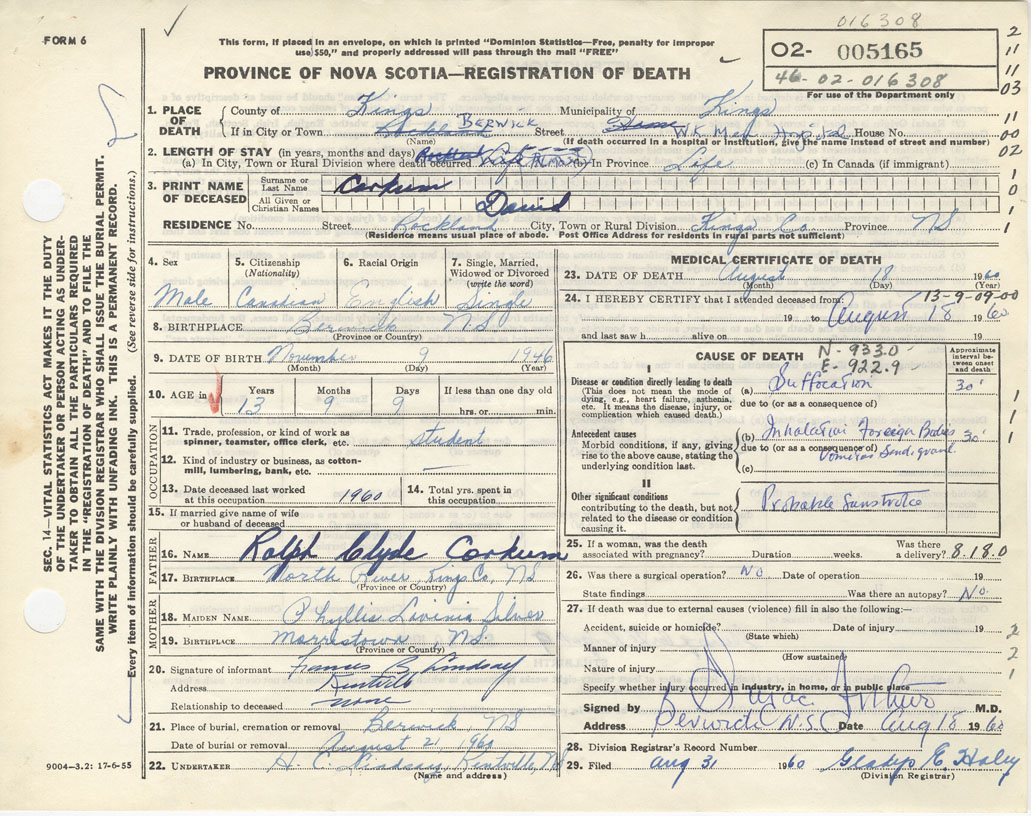 016308
FORM 6
This form, if placed in an envelope, on which is printed "Dominion Statistics—Free, penalty for improper
use $50," and properly addressed will pass through the mail "FREE"
PROVINCE OF NOVA SCOTIA—REGISTRATION OF DEATH
O2- 005165
46-02-016308
For use of the Department only
2
11
11
03
11
00
02
1. PLACE OF DEATH
County of Kings Municipality of Kings
If in City or Town Rockland BERWICK Street WK Mem Hospital House No.
(Name) (If death occurred in a hospital or institution, give the name instead of street and number)
2. LENGTH OF STAY (in years, months and days)
(a) In City, Town or Rural Division where death occurred Life (b) In Province Life (c) In Canada (if immigrant)
3. PRINT NAME OF DECEASED
Surname or Last Name Corkum
All Given or Christian Names David
RESIDENCE No. Street Rockland City, Town or Rural Division Kings Co. Province NS
(Residence means usual place of abode. Post Office Address for residents in rural parts not sufficient)
SEC. 14—VITAL STATISTICS ACT MAKES IT THE DUTY
OF THE UNDERTAKER OR PERSON ACTING AS UNDER-
TAKER TO OBTAIN ALL THE PARTICULARS REQUIRED
IN THE "REGISTRATION OF DEATH" AND TO FILE THE
SAME WITH THE DIVISION REGISTRAR WHO SHALL ISSUE THE BURIAL PERMIT.
WRITE PLAINLY WITH UNFADING INK. THIS IS A PERMANENT RECORD.
Every item of information should be carefully supplied. (See reverse side for instructions.)
4. Sex
Male
5. Citizenship
(Nationality)
Canadian
6. Racial Origin
English
7. Single, Married,
Widowed or Divorced
(write the word)
Single
8. BIRTHPLACE Berwick N.S
(Province or Country)
9. DATE OF BIRTH November 9 1946
(Month) (Day) (Year)
10. AGE in
Years Months Days If less than one day old
13 9 9 hrs. or min.
OCCUPATION
11. Trade, profession, or kind of work as
spinner, teamster, office clerk, etc. student
12. Kind of industry or business, as cotton-
mill, lumbering, bank, etc. —
13. Date deceased last worked
at this occupation 1960
14. Total yrs. spent in
this occupation
15. If married give name of wife
or husband of deceased
FATHER
16. NAME Ralph Clyde Corkum
17. BIRTHPLACE North River, Kings Co, NS
(Province or Country)
MOTHER
18. MAIDEN NAME Phyllis Lavinia Silver
19. BIRTHPLACE Morristown, NS.
(Province or Country)
20. Signature of informant Francis B Lindsay
Address Kentville
Relationship to deceased none
21. Place of burial, cremation or removal Berwick NS
Date of burial or removal August 21, 1960
22. UNDERTAKER H. C. Lindsay, Kentville, NS
(Name and address)
9004—3.2: 17-6-55
MEDICAL CERTIFICATE OF DEATH
23. DATE OF DEATH August 18 1960
(Month) (Day) (Year)
24. I HEREBY CERTIFY that I attended deceased from: 13-9-09-00
19 to August 18 1960
and last saw h alive on 19
CAUSE OF DEATH N-933.0
E-922.9
Approximate
interval be-
tween onset
and death
I
Disease or condition directly leading to death
(This does not mean the mode of
dying, e.g., heart failure, asthenia,
etc. It means the disease, injury, or
complication which caused death.)
(a) Suffocation 30'
due to (or as a consequence of)
Antecedent causes
Morbid conditions, if any, giving
rise to the above cause, stating the
underlying condition last.
(b) Inhalation Foreign Bodies 30
due to (or as a consequence of)
Vomitus Sand, gravel
(c)
II
Other significant conditions
contributing to the death, but not
related to the disease or condition
causing it.
Probable Sunstroke
25. If a woman, was the death
associated with pregnancy? Duration weeks. Was there
a delivery? 8.18.0
26. Was there a surgical operation? No Date of operation 19
State findings Was there an autopsy? No.
27. If death was due to external causes (violence) fill in also the following:—
Accident, suicide or homicide? Date of injury 19
(State which)
Manner of injury
(How sustained)
Nature of injury
Specify whether injury occurred in industry, in home, or in public place
Signed by M.D.
Address Berwick N.S. Date Aug 18 1960
28. Division Registrar's Record Number
29. Filed Aug 31 1960 Gladys E. Haley
(Division Registrar)